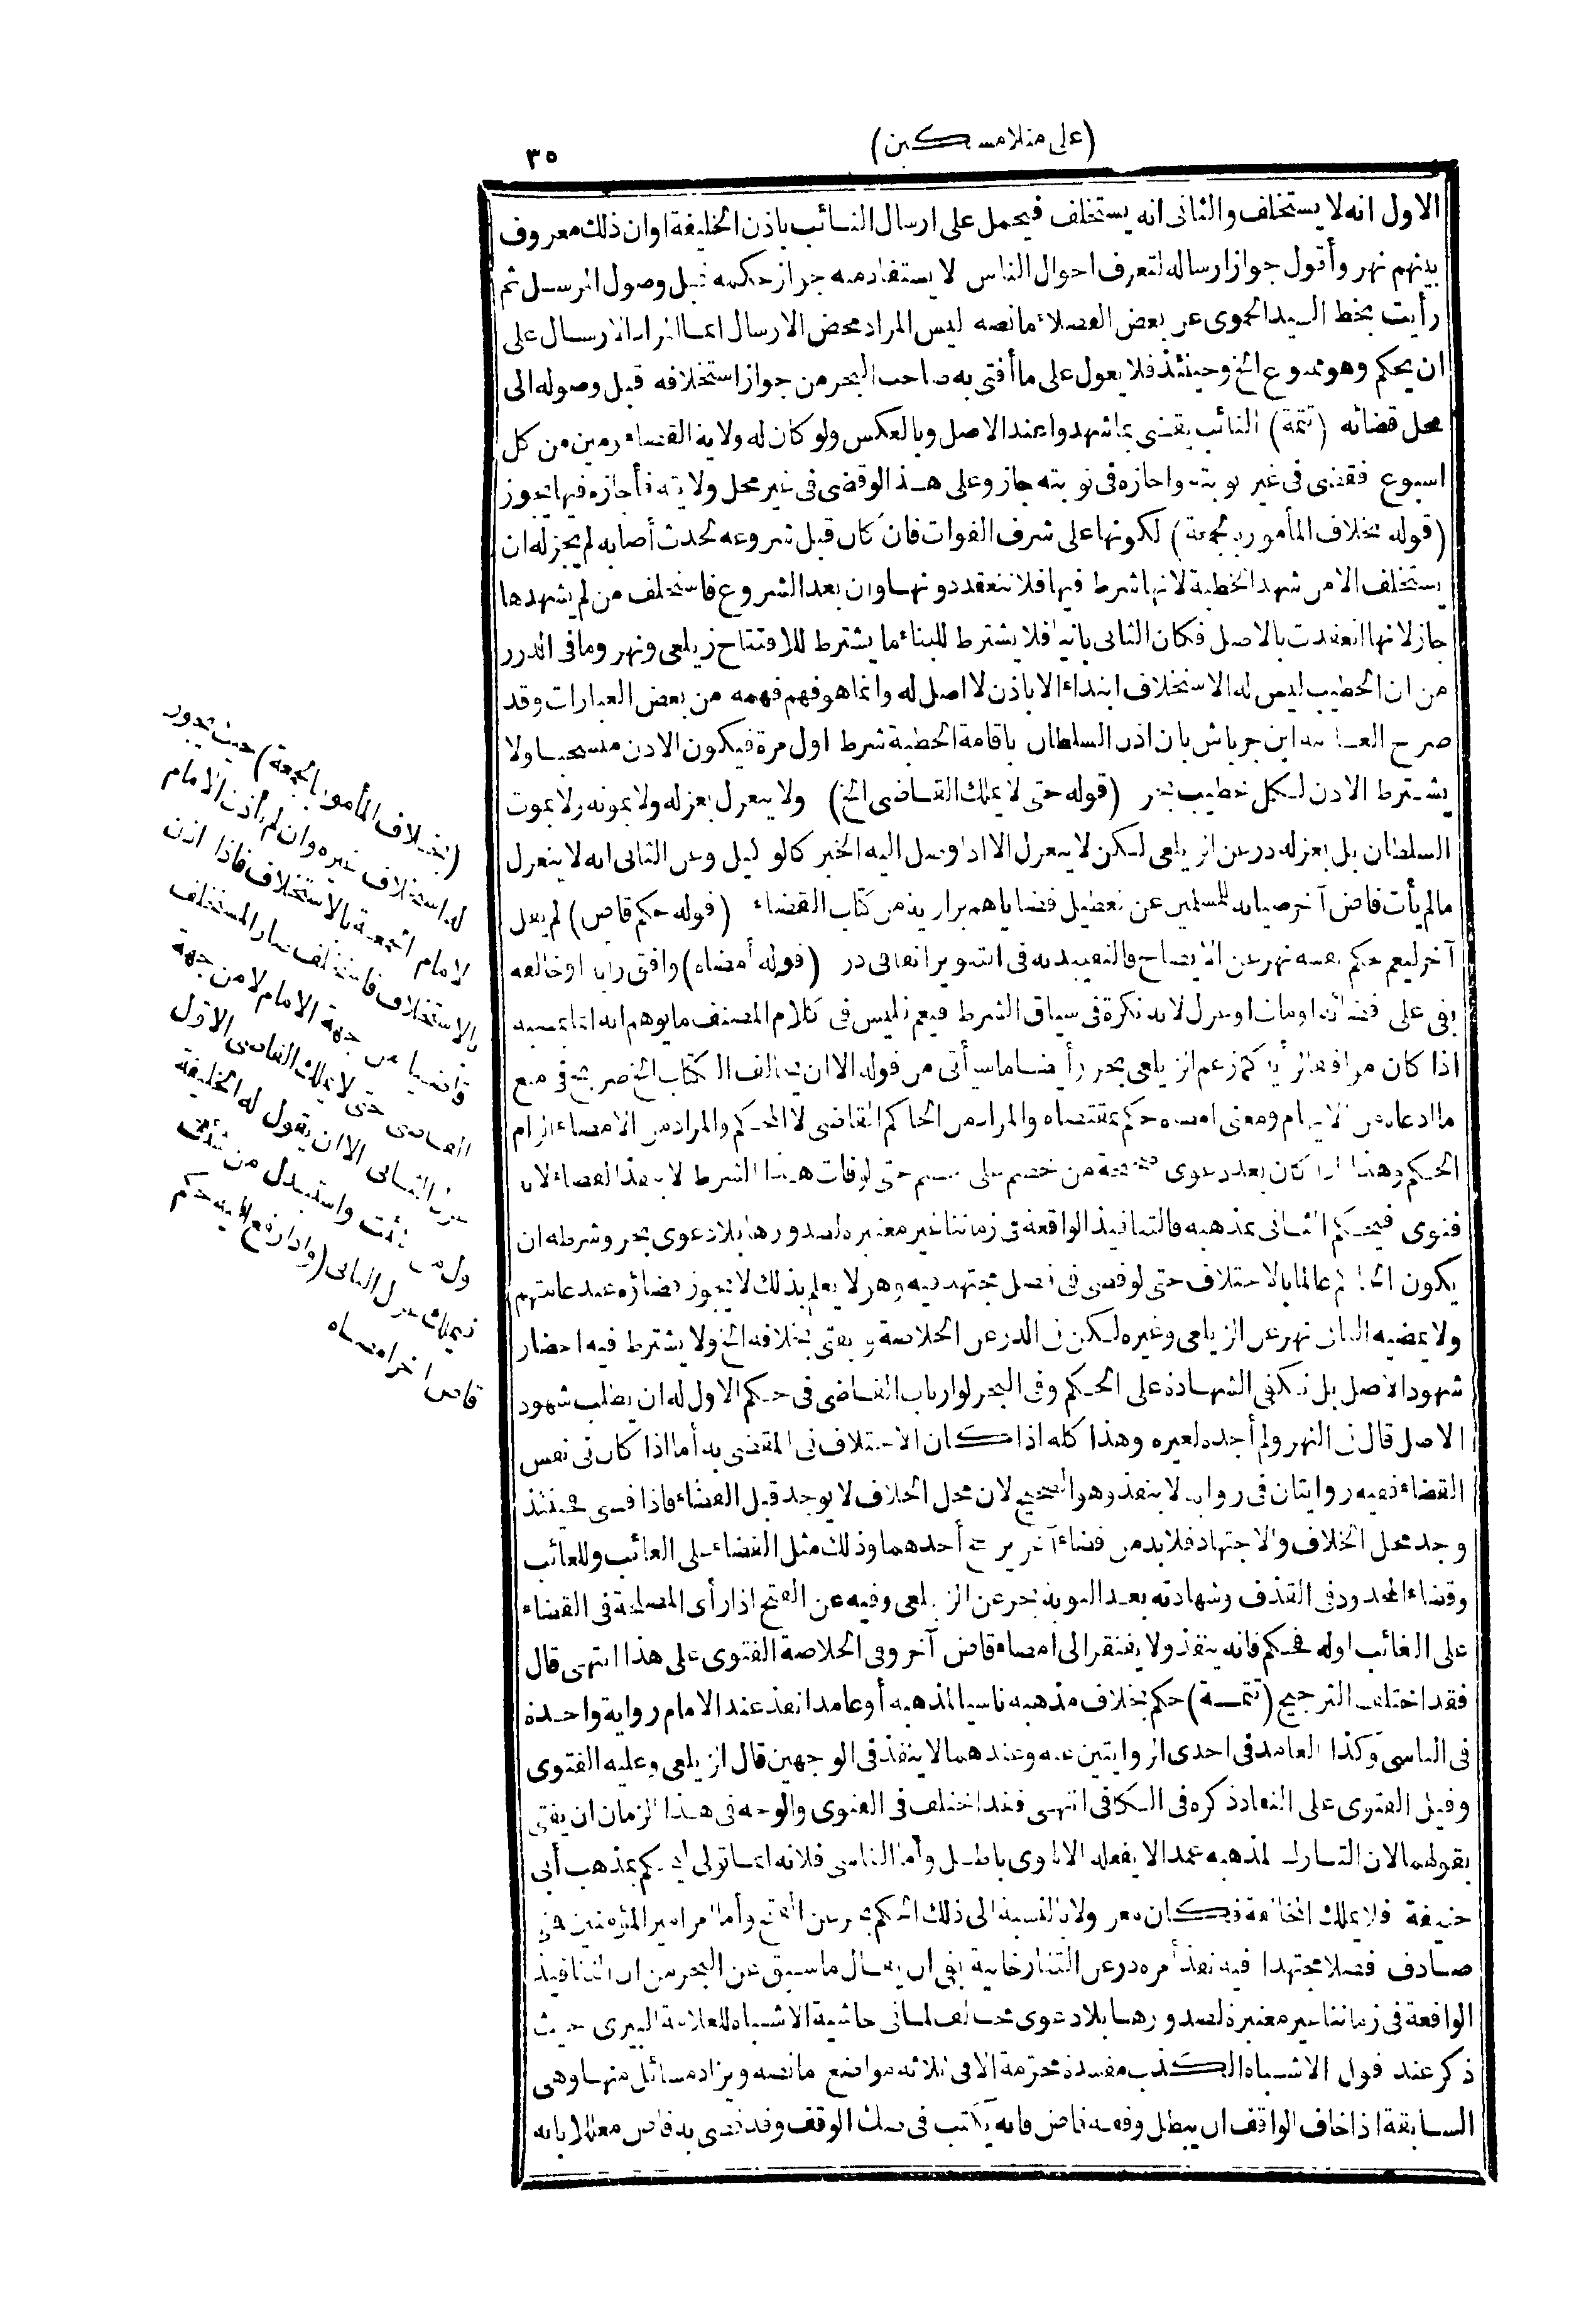 (على منلا مسكين)
٣٥
الاول انه لا يستخلف والثانى انه يستخلف فيحمل على ارسال النائب باذن الخليفة اوان ذلك معروف
بينهم نهر وأقول جواز ارساله لتعرف احوال الناس لا يستفاد منه جواز حكمه قبل وصول المرسل ثم
رأيت بخط السيد الحموى عن بعض الفضلاء مانصه ليس المراد محض الارسال انما المراد الارسال على
ان يحكم وهو ممنوع الخ وحينئذ فلا يعول على ما أفتى به صاحب البحر من جواز استخلافه قبل وصوله الى
محل قضائه (تتمة) النائب يقضى بما شهدوا عند الاصل وبالعكس ولو كان له ولاية القضاء يومين من كل
اسبوع فقضى فى غير نوبته واجازه فى نوبته جاز وعلى هذا لو قضى فى غير محل ولايته فأجازه فيها يجوز
(قوله بخلاف المأمور بالجمعة) لكونها على شرف الفوات فان كان قبل شروعه لحدث أصابه لم يجز له ان
يستخلف الا من شهد الخطبة لانها شرط فيها فلا تنعقد دونها وان بعد الشروع فاستخلف من لم يشهدها
جاز لانها انعقدت بالاصل فكان الثانى بانيا فلا يشترط للبناء ما يشترط للافتتاح زيلعى ونهر وما فى الدرر
من ان الخطيب ليس له الاستخلاف ابتداء الا باذن لا اصل له وانما هو فهم فهمه من بعض العبارات وقد
صرح العلامة ابن جرباش بان اذن السلطان باقامة الخطبة شرط اول مرة فيكون الاذن منسحبا ولا
يشترط الاذن لكل خطيب بحر (قوله حتى لا يملك القاضى الخ) ولا ينعزل بعزله ولا بموته ولا بموت
السلطان بل بعزله در عن الزيلعى لكن لا ينعزل الا اذا وصل اليه الخبر كالوكيل وعن الثانى انه لا ينعزل
مالم يأت قاض آخر صيانة للمسلمين عن تعطيل قضاياهم بزازية من كتاب القضاء (قوله حكم قاض) لم يقل
آخر ليعم حكم نفسه نهر عن الايضاح فالتقييد به فى التنوير اتفاقى در (قوله أمضاه) وافق رأيه او خالفه
بقى على قضائه اومات او عزل لانه نكرة فى سياق الشرط فيعم فليس فى كلام المصنف ما يوهم انه انما يمضيه
اذا كان موافقا لرأيه كما زعم الزيلعى بحر وأيضا ما سيأتى من قوله الا ان يخالف الكتاب الخ صريح فى منع
ما ادعاه من الايهام ومعنى امضاه حكم بمقتضاه والمراد من الحاكم القاضى لا المحكم والمراد من الامضاء الزام
الحكم وهذا اذا كان بعد دعوى صحيحة من خصم على خصم حتى لو فات هذا الشرط لا ينفذ القضاء لانه
فتوى فيحكم الثانى بمذهبه فالتنافيذ الواقعة فى زماننا غير معتبرة لصدورها بلا دعوى بحر وشرطه ان
يكون الحاكم عالما بالاختلاف حتى لو قضى فى فصل مجتهد فيه وهو لا يعلم بذلك لا يجوز قضاؤه عند عامتهم
ولا يمضيه الثانى نهر عن الزيلعى وغيره لكن فى الدر عن الخلاصة ويفتى بخلافه الخ ولا يشترط فيه احضار
شهود الاصل بل تكفى الشهادة على الحكم وفى البحر لو ارتاب القاضى فى حكم الاول له ان يطلب شهود
الاصل قال فى النهر ولم أجده لغيره وهذا كله اذا كان الاختلاف فى المقضى به أما اذا كان فى نفس
القضاء ففيه روايتان فى رواية لا ينفذ وهو الصحيح لان محل الخلاف لا يوجد قبل القضاء فاذا قضى فحينئذ
وجد محل الخلاف والاجتهاد فلابد من قضاء آخر يرجح أحدهما وذلك مثل القضاء على الغائب وللغائب
وقضاء المحدود فى القذف وشهادته بعد التوبة بحر عن الزيلعى وفيه عن الفتح اذا رأى المصلحة فى القضاء
على الغائب اوله فحكم فانه ينفذ ولا يفتقر الى امضاء قاض آخر وفى الخلاصة الفتوى على هذا انتهى قال
فقد اختلف الترجيح (تتمة) حكم بخلاف مذهبه ناسيا لمذهبه أو عامدا نفذ عند الامام رواية واحدة
فى الناسى وكذا العامد فى احدى الروايتين عنه وعندهما لا ينفذ فى الوجهين قال الزيلعى وعليه الفتوى
وقيل الفتوى على النفاذ ذكره فى الكافى انتهى فقد اختلف فى الفتوى والوجه فى هذا الزمان ان يفتى
بقولهما لان التارك لمذهبه عمدا لا يفعله الا لهوى باطل وأما الناسى فلانه انما تولى ليحكم بمذهب أبى
حنيفة فلا يملك المخالفة فيكون معزولا بالنسبة الى ذلك الحكم بحر عن الفتح وأما امر امير المؤمنين متى
صادف فصلا مجتهدا فيه نفذ أمره در عن التتارخانية بقى ان يقال ما سبق عن البحر من ان التنافيذ
الواقعة فى زماننا غير معتبرة لصدورها بلا دعوى مخالف لما فى حاشية الاشباه للعلامة البيرى حيث
ذكر عند قول الاشباه الكذب مفسدة محرمة الا فى ثلاثة مواضع مانصه ويزاد مسائل منها وهى
السابقة اذا خاف الواقف ان يبطل وقفه قاض فانه يكتب فى صك الوقف وقد قضى به قاض معللا بانه
(بخلاف المأمور بالجمعة) حيث يجوز
له استخلاف غيره وان لم يأذن الامام
لامام الجمعة بالاستخلاف فاذا اذن
بالاستخلاف فاستخلف صار المستخلف
قاضيا من جهة الامام لا من جهة
القاضى حتى لا يملك القاضى الاول
عزل الثانى الا ان يقول له الخليفة
ول من شئت واستبدل من شئت
فيملك عزل الثانى (واذا رفع اليه حكم
قاض) آخر امضاه